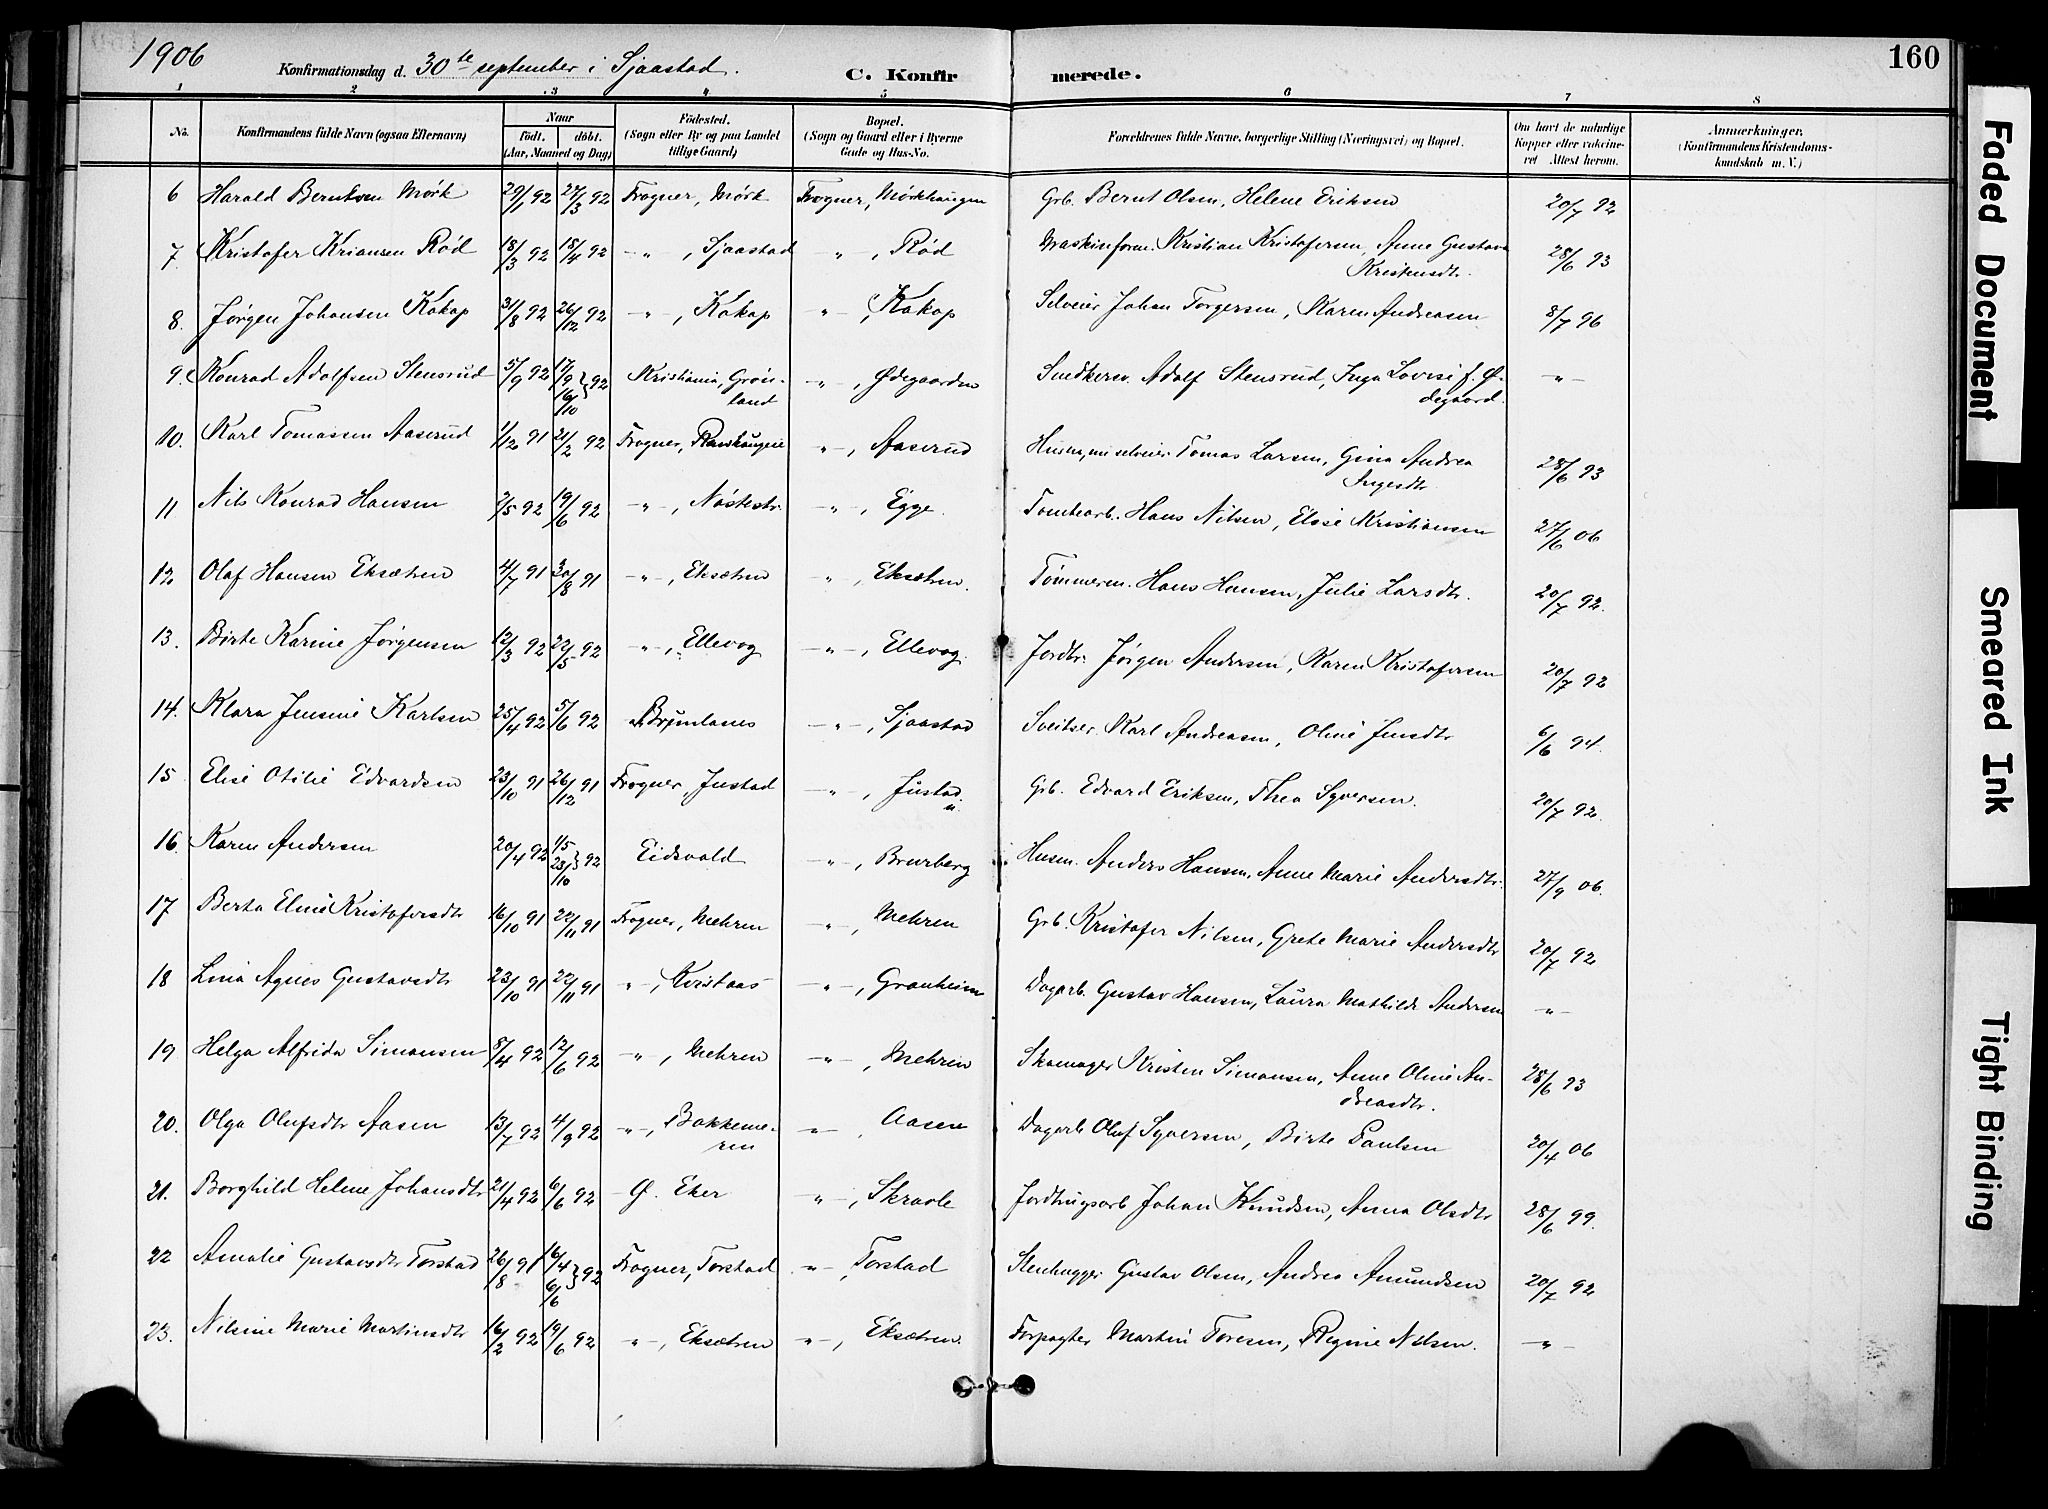 1906 Konfirmationsdag d. 30te september i Sjaastad. C. Konfirmerede. 160
1 2 3 4 5 6 7 8
No. Konfirmandens fulde Navn (ogsaa Efternavn) Naar født. døbt. (Aar, Maaned og Dag) Fødested. (Sogn eller By og paa Landet tillige Gaard) Bopæl. (Sogn og Gaard eller i Byerne Gade og Hus-No. Forældrenes fulde Navne, borgerlige Stilling (Næringsvei) og Bopæl. Om havt de naturlige Kopper eller vakcineret Attest herom. Anmærkninger. (Konfirmandens Kristendomskundskab m. V.)
6 Harald Berntsen Mørk 29/1 92 27/3 92 Frogner, Mørk Frogner, Mørkhaugen Grb. Bernt Olsen, Helene Eriksen 20/7 92
7. Kristofer Kriansen Rød 18/3 92 18/4 92 -"-, Sjaastad -"-, Rød Maskinform. Kristian Kristofersen, Anne Gustava Kristensdtr. 28/6 93
8. Jørgen Johansen Kakap 31/8 92 26/12 92 -"-, Kakap -"-, Kakap Selveier Johan Torgersen, Karen Andreasen 8/7 96
9. Konrad Adolfsen Stensrud 5/9 92 17/9 16/10 } 92 Kristiania, Grønland -"-, Ødegaarden Snedkersv. Adolf Stensrud, Inga Lovise f. Ødegaard. -"-
10. Karl Tomassen Aaserud 1/12 91 21/2 92 Frogner, -"-, Aaserud Husm, nu selveier Tomas Larsen, Gina Andrea Ingesdtr 28/6 93
11 Nils Konrad Hansen 2/5 92 19/6 92 -"-, Nøstestr. -"-, Egge. Tomtearb. Hans Nilsen, Elise Kristiansen 27/6 06
12. Olaf Hansen Eksætren 4/7 91 30/8 91 -"-, Eksætren -"-, Eksætren. Tømmerm. Hans Hansen, Julie Larsdtr. 20/7 92.
13. Birte Karine Jørgensen 12/3 92 22/5 92 -"-, Ellevog -"-, Ellevog. Jordbr. Jørgen Andersen, Karen Kristofersen 20/7 92
14. Klara Jensine Karlsen 25/4 92 5/6 92 Brunlanes -"-, Sjaastad Sveitser. Karl Andreasen, Oline Jensdtr 6/6 94.
15 Elise Otilie Edvardsen 23/10 91 26/12 91 Frogner, Justad -"-, Justad. Grb. Edvard Eriksen, Thea Syversen. 20/7 92.
16. Karen Andersen 20/4 92 1/5 23/10 } 92 Eidsvold -"-, Brurberg Husm. Anders Hansen, Anne Marie Andersdtr. 27/9 06.
17 Berta Eline Kristofersdtr 16/10 91 22/11 91 Frogner, Mehren -"-, Mehren Grb. Kristofer Nilsen, Grete Marie Andersdtr 20/7 92
18 Lina Agnes Gustavsdtr 23/10 91 22/11 91 -"-, Kvistaas -"-, Granheim Dagarb. Gustav Hansen, Laura Mathilde Andersen -"-
19 Helga Alfrida Simonsen 8/4 92 12/6 92 -"-, Mehren -"-, Mehren Skomager Kristen Simonsen, Anne Oline Andreasdtr. 28/6 93
20. Olga Olufsdtr Aasen 13/7 92 4/9 92 -"-, Bakkemeren -"-, Aasen Dagarb Oluf Syversen, Birte Paulsen 20/4 06
21. Borghild Helene Johansdtr 21/4 92 6/6 92 Ø. Eker -"-, Skravle Johan Knudsen, Anna Olsdtr 28/6 99.
22 Amalie Gustavsdtr Torstad 26/8 91 16/4 6/6 } 92 Frogner, Torstad -"-, Torstad Stenhugger Gustav Olsen, Andrea Amundsen 20/7 92
23. Nilsine Marie Martinsdtr 16/2 92 19/6 92 -"-, Eksætren -"-, Eksætren. Forpagter Martin Toresen, Regine Nilsen. -"-
Faded Document
Smeared Ink
Tight Binding